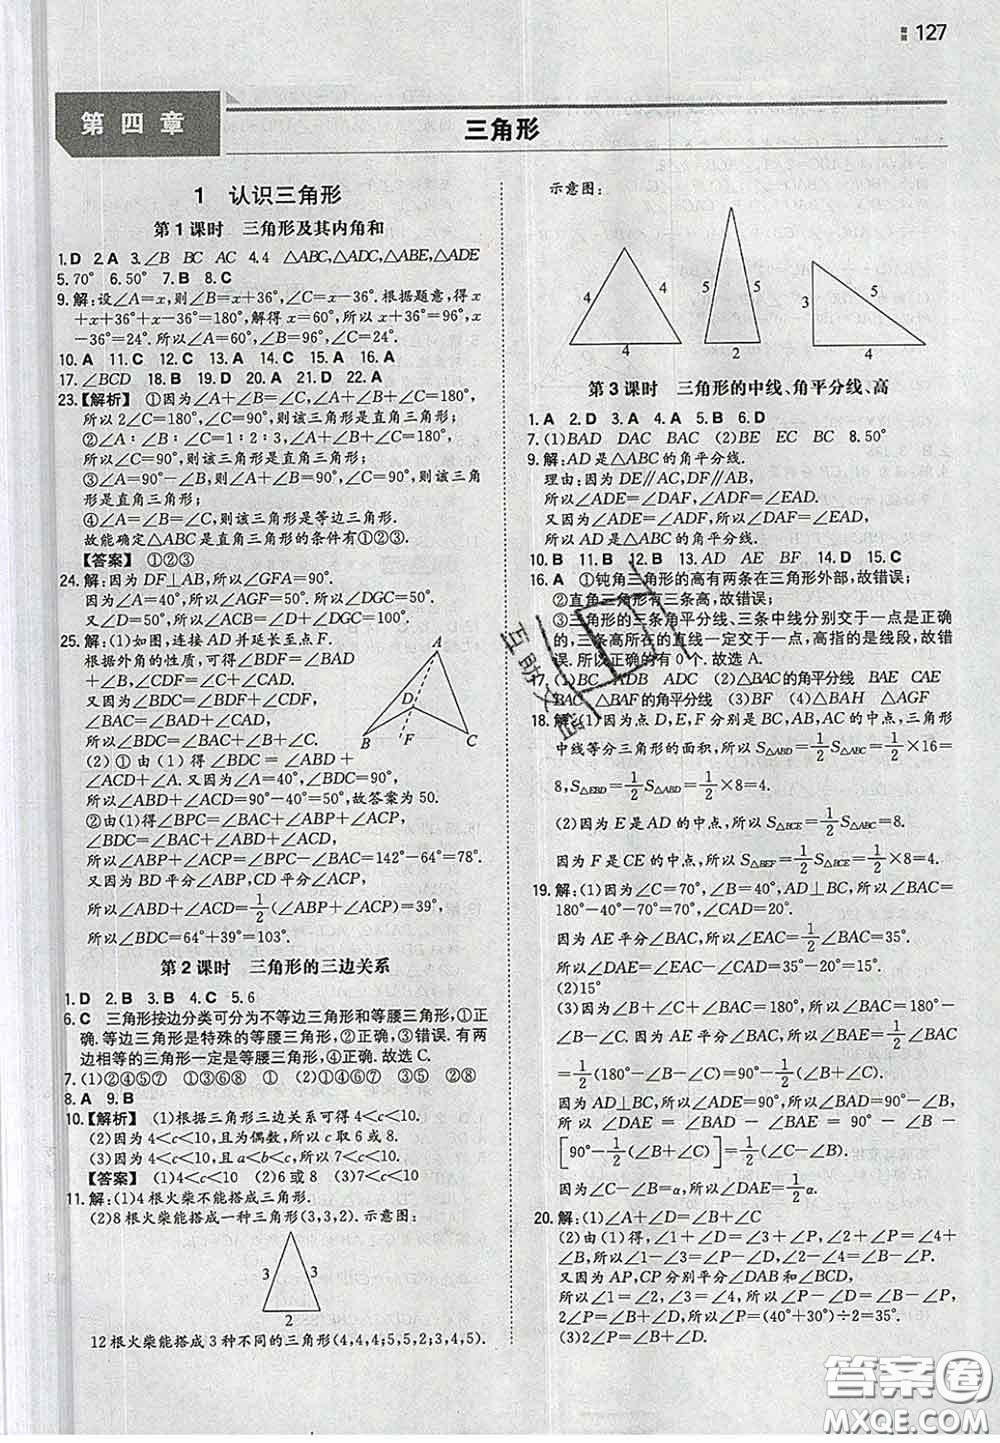 答案 127
第四章
三角形
1 认识三角形
第1课时 三角形及其内角和
1.D 2.A 3.∠B BC AC 4.4 △ABC,△ADC,△ABE,△ADE
5.70° 6.50° 7.B 8.C
9.解:设∠A=x,则∠B=x+36°,∠C=x-36°.根据题意,得
x+x+36°+x-36°=180°,解得x=60°,所以x+36°=96°,
x-36°=24°.所以∠A=60°,∠B=96°,∠C=24°.
10.A 11.C 12.C 13.A 14.C 15.A 16.A
17.∠BCD 18.B 19.D 20.A 21.D 22.A
23.【解析】 ①因为∠A+∠B=∠C,∠A+∠B+∠C=180°,
所以2∠C=180°,∠C=90°,则该三角形是直角三角形;
②∠A∶∠B∶∠C=1∶2∶3,∠A+∠B+∠C=180°,
所以∠C=90°,则该三角形是直角三角形;
③∠A=90°-∠B,所以∠A+∠B=90°,∠C=90°,则该三角
形是直角三角形;
④∠A=∠B=∠C,则该三角形是等边三角形.
故能确定△ABC是直角三角形的条件有①②③.
【答案】 ①②③
24.解:因为DF⊥AB,所以∠GFA=90°.
因为∠A=40°,所以∠AGF=50°.所以∠DGC=50°.
又∠D=50°,所以∠ACB=∠D+∠DGC=100°.
25.解:(1)如图,连接AD并延长至点F.
根据外角的性质,可得∠BDF=∠BAD
+∠B,∠CDF=∠C+∠CAD,
又因为∠BDC=∠BDF+∠CDF,
∠BAC=∠BAD+∠CAD,
所以∠BDC=∠BAC+∠B+∠C.
(2)①由(1)得∠BDC=∠ABD+
∠ACD+∠A.又因为∠A=40°,∠BDC=90°,
所以∠ABD+∠ACD=90°-40°=50°,故答案为50.
②由(1)得∠BPC=∠BAC+∠ABP+∠ACP,
∠BDC=∠BAC+∠ABD+∠ACD,
所以∠ABP+∠ACP=∠BPC-∠BAC=142°-64°=78°.
又因为BD平分∠ABP,CD平分∠ACP,
所以∠ABD+∠ACD=1/2(∠ABP+∠ACP)=39°,
所以∠BDC=64°+39°=103°.
第2课时 三角形的三边关系
1.D 2.B 3.B 4.C 5.6
6.C 三角形按边分类可分为不等边三角形和等腰三角形,①正
确.等边三角形是特殊的等腰三角形,②正确,③错误.有两
边相等的三角形一定是等腰三角形,④正确.故选C.
7.(1)②④⑤⑦ ①③⑥⑧ ① (2)①④⑥⑦ ③⑤ ②⑧
8.A 9.B
10.【解析】 (1)根据三角形三边关系可得4<c<10.
(2)因为4<c<10,且为偶数,所以c取6或8.
(3)因为4<c<10,且a<b<c,所以7<c<10.
【答案】 (1)4<c<10 (2)6或8 (3)7<c<10
11.解:(1)4根火柴不能搭成三角形.
(2)8根火柴能搭成一种三角形(3,3,2).示意图:
3 3
2
12根火柴能搭成3种不同的三角形(4,4,4;5,5,2;3,4,5).
A
D
B F C
示意图:
4 4
4
5 5
2
3 5
4
第3课时 三角形的中线、角平分线、高
1.A 2.D 3.A 4.A 5.B 6.D
7.(1)BAD DAC BAC (2)BE EC BC 8.50°
9.解:AD是△ABC的角平分线.
理由:因为DE∥AC,DF∥AB,
所以∠ADE=∠DAF,∠ADF=∠EAD.
又因为∠ADE=∠ADF,所以∠DAF=∠EAD,
所以AD是∠BAC的角平分线.
10.B 11.B 12.B 13.AD AE BF 14.D 15.C
16.A ①钝角三角形的高有两条在三角形外部,故错误;
②直角三角形有三条高,故错误;
③三角形的三条角平分线、三条中线分别交于一点是正确
的,三条高所在的直线一定交于一点,高指的是线段,故错
误.所以正确的有0个.故选A.
17.(1)BC ADB ADC (2)△ABC的角平分线 BAE CAE
BAC △BAF的角平分线 (3)BF (4)△BAH △AGF
18.解:(1)因为点D,E,F分别是BC,AD,AC的中点,三角形
中线等分三角形的面积,所以S△ABD=1/2S△ABC=1/2×16=
8,S△EBD=1/2S△ABD=1/2×8=4.
(2)因为E是AD的中点,所以S△BCE=1/2S△ABC=8.
因为F是CE的中点,所以S△BEF=1/2S△BCE=1/2×8=4.
19.解:(1)因为∠C=70°,∠B=40°,AD⊥BC,所以∠BAC=
180°-40°-70°=70°,∠CAD=20°.
因为AE平分∠BAC,所以∠EAC=1/2∠BAC=35°.
所以∠DAE=∠EAC-∠CAD=35°-20°=15°.
(2)15°
(3)因为∠B+∠C+∠BAC=180°,所以∠BAC=180°-
∠B-∠C.因为AE平分∠BAC,所以∠BAE=1/2∠BAC
=1/2(180°-∠B-∠C)=90°-1/2(∠B+∠C).
因为AD⊥BC,所以∠ADE=90°,所以∠BAD=90°-∠B,
所以∠DAE=∠BAD-∠BAE=90°-∠B-
[90°-1/2(∠B+∠C)]=1/2(∠C-∠B).
因为∠C-∠B=α,所以∠DAE=1/2α.
20.解:(1)∠A+∠D=∠B+∠C
(2)由(1)得,∠1+∠D=∠3+∠P,∠2+∠P=∠4+
∠B,所以∠1-∠3=∠P-∠D,∠2-∠4=∠B-∠P.
又因为AP,CP分别平分∠DAB和∠BCD,
所以∠1=∠2,∠3=∠4,所以∠P-∠D=∠B-∠P,
2∠P=∠B+∠D,所以∠P=(40°+30°)÷2=35°.
(3)2∠P=∠B+∠D.
答案圈
MXQE.COM